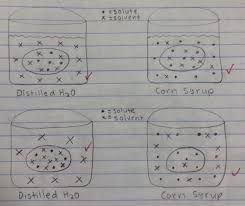 • = solute
x = solvent
Distilled H₂O
Corn Syrup
• = solute
x = solvent
Distilled H₂O
Corn Syrup